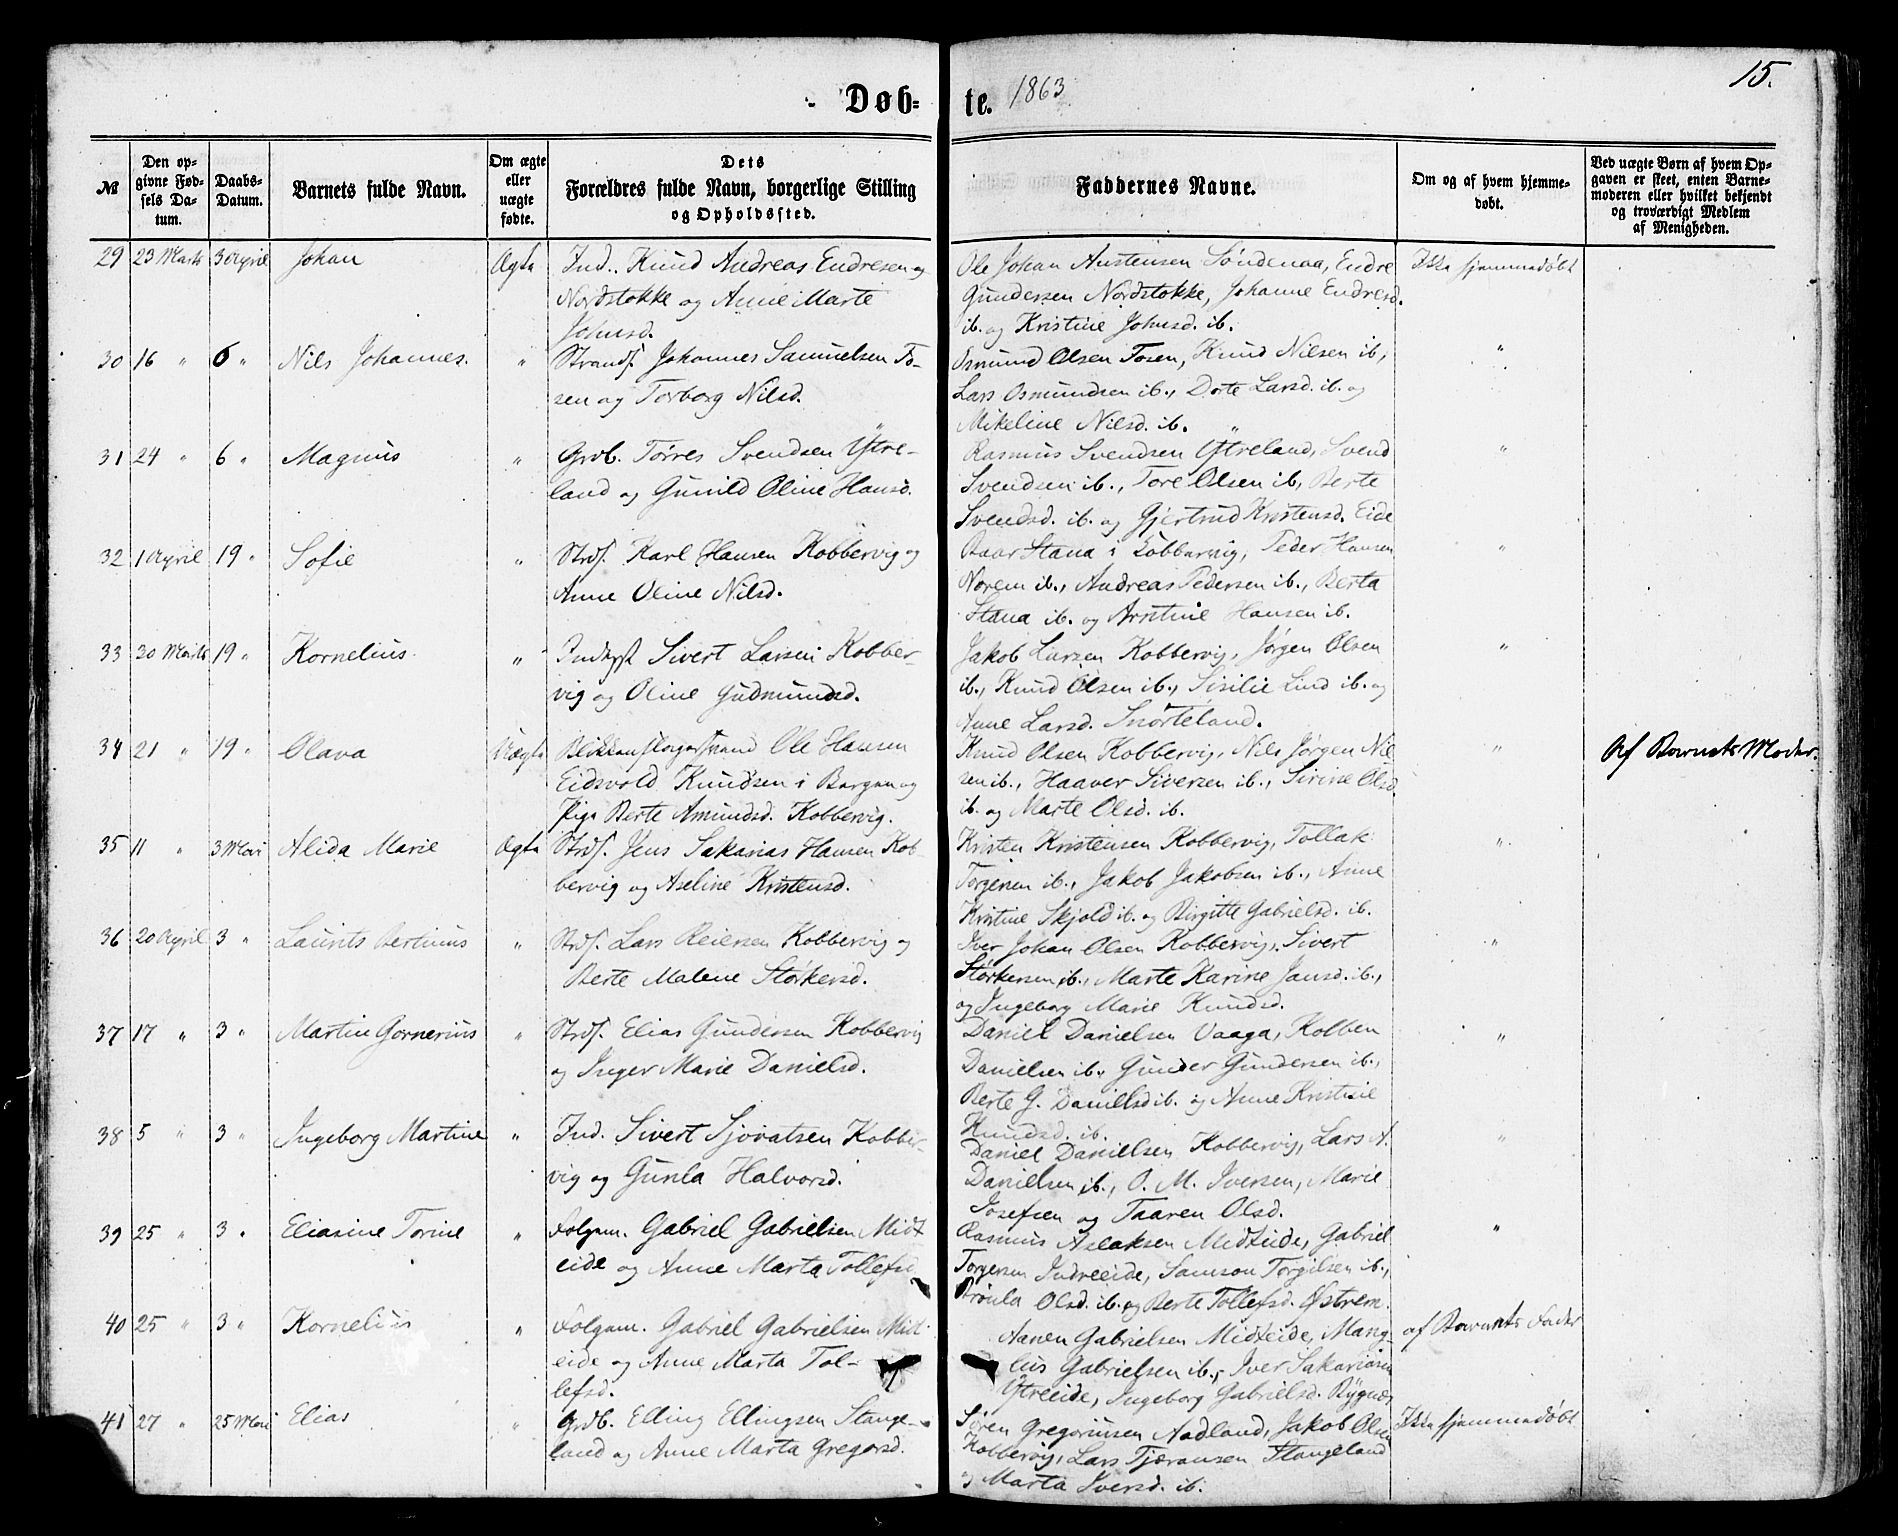 Døb-
te. 1863
15.
№
Den op-
givne Fød-
sels Da-
tum.
Daabs-
Datum.
Barnets fulde Navn.
Om ægte
eller
uægte
fødte.
Dets
Forældres fulde Navn, borgerlige Stilling
og Opholdssted.
Faddernes Navne.
Om og af hvem hjemme-
døbt.
Ved uægte Børn af hvem Op-
gaven er skeet, enten Barne-
moderen eller hvilket bekjendt
og troværdigt Medlem
af Menigheden.
29 23 Marts 3 April Johan Ægte Ind. Knud Andreas Endresen og
Nordstokke og Anne Marte
Johnsd.
Ole Johan Austensen Søndenaa, Endre
Gundersen Nordstokke, Johanne Endresd.
ib. og Kristine Johnsd. ib.
Ikke hjemmedøbt
30 16 " 6 " Nils Johannes. " Strands. Johannes Samuelsen Fo-
sen og Torborg Nilsd.
Osmund Olsen Fosen, Knud Nilsen ib.,
Lars Osmundsen ib., Dorte Larsd. ib. og
Mikeline Nilsd. ib.
"
31 24 " 6 " Magnus " Grdb. Tørres Svendsen Ytre-
land og Gunild Oline Hansd.
Rasmus Svendsen Ytreland, Svend
Svendsen ib., Tore Olsen ib., Berte
Svendsd. ib. og Gjertrud Kristensd. Eide
"
32 1 April 19 " Sofie " Strds. Karl Hansen Kobbervig og
Anne Oline Nilsd.
Stana i Kobbervig, Peder Hansen
Norem ib., Andreas Pedersen ib., Berta
Stana ib. og Hansen ib.
"
33 30 Marts 19 " Kornelius " Inderst Sivert Larsen Kobber-
vig og Oline Gudmundsd.
Jakob Larsen Kobbervig, Jørgen Olsen
ib., Knud Olsen ib., Sisilie Lind ib. og
Anne Larsd. Snørteland.
"
34 21 " 19 " Olava Uægte Ole Hansen
Eidsvold Knudsen i Bergen og
Pige Berte Amundsd. Kobbervig.
Knud Olsen Kobbervig, Nils Jørgen Nil-
sen ib., Haaver Siversen ib., Sirine Olsd.
ib. og Marte Olsd. ib.
"
Af Barnets Moder.
35 11 " 3 Mai Alida Marie Ægte Strds. Jens Sakarias Hansen Kob-
bervig og Aseline Kristensd.
Kristen Kristensen Kobbervig, Tollak
Torgersen ib., Jakob Jakobsen ib., Anne
Kristine Skjold ib. og Birgitte Gabrielsd. ib.
"
36 20 April 3 " Laurits Bertinus " Strds. Lars Reiersen Kobbervig og
Berte Malene Størkersd.
Iver Johan Olsen Kobbervig, Sivert
Størkersen ib., Marte Karine Jansd. ib.,
og Ingeborg Marie Knudsd.
"
37 17 " 3 " Martin Gornerius " Strds. Elias Gundersen Kobbervig
og Inger Marie Danielsd.
Daniel Danielsen Vaaga, Kolben
Danielsen ib., Gunder Gundersen ib.,
Berte G. Danielsd. ib. og Anne Kristine
Knudsd. ib.
"
38 5 " 3 " Ingeborg Martine " Ind. Sivert Sjovatsen Kobber-
vig og Gunla Halvorsd.
Daniel Danielsen Kobbervig, Lars A.
Danielsen ib., O. M. Iversen, Marie
Josefsen og Taaren Olsd.
"
39 25 " 3 " Eliasine Torine " Folgem. Gabriel Gabrielsen Midt
eide og Anne Marta Tollefsd.
Rasmus Aslaksen Midteide, Gabriel
Torgersen Indreeide, Samson Torgilsen ib.,
Olsd. ib. og Berte Tollefsd. Østrem.
"
40 25 " 3 " Kornelius " Folgem. Gabriel Gabrielsen Midt-
eide og Anne Marta Tol-
lefsd.
Aanen Gabrielsen Midteide, Mang-
lus Gabrielsen ib., Iver Sakariasen
Ytreeide, Ingeborg Gabrielsd. Rygnæs
af Barnets Fader
41 27 " 25 Mai Elias " Grdb. Elling Ellingsen Stange-
land og Anne Marta Gregorsd.
Søren Gregoriusen Aadland, Jakob Olsen
Kobbervig, Lars Tjæransen Stangeland
og Marta Iversd. ib.
Ikke hjemmedøbt